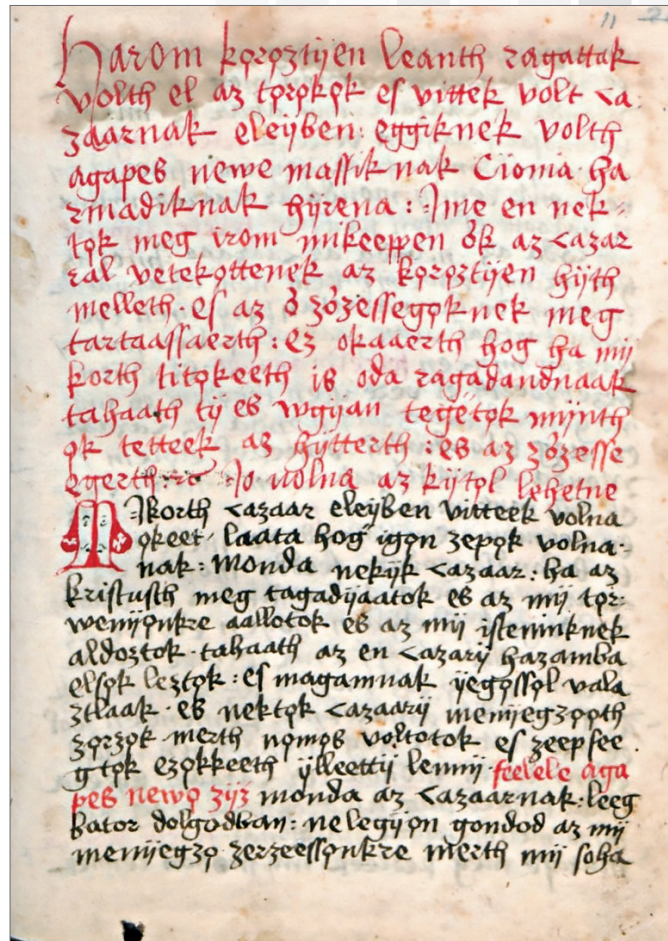 11 2
harom kǫrǫztijen leanth ragattak
volth el az tǫrǫkǫk es vittek volt ca
zaarnak eleijben: eggiknek volth
agapes newe massiknak Cionia· ha
rmadiknak hijrena: Ime en nek-
tǫk meg irom mikeeppen ők az cazar
ral vetekǫttenek az kǫrǫztijen hijth
melleth· es az ő zőzessegǫknek meg
tartaassaerth: ez okaaerth hog ha mij
korth titǫkeeth is oda ragadandnaak
tahaath tij es vgijan tegetǫk mijnth
ǫk tetteek az hijtterth: es az zőzesse
egerth: Jo volna az kijtǫl lehetne
MIkorth cazaar eleijben vitteek volna
ǫkeet· laata hog igǫn zepǫk volna-
nak: monda nekijk cazaar: ha az
kristusth meg tagadijaatok es az mij tǫr:
wenijǫnkre aallotok es az mij isteninknek
aldoztok· tahaath az en cazarij hazamba
elsǫk leztǫk: es magamnak ijegǫssǫl vala
ztlaak· es nektǫk cazaarij menijegzǫǫth
zǫrzǫk· merth nǫmǫs voltotok es zeepsee
gtǫk ezǫkkeeth ijlleettij lennij· feelele aga
pes newǫ zijz monda az cazaarnak: leeg
bator dolgodban: ne legijǫn gondod az mij
menijegzǫ zerzeessǫnkre merth mij soha